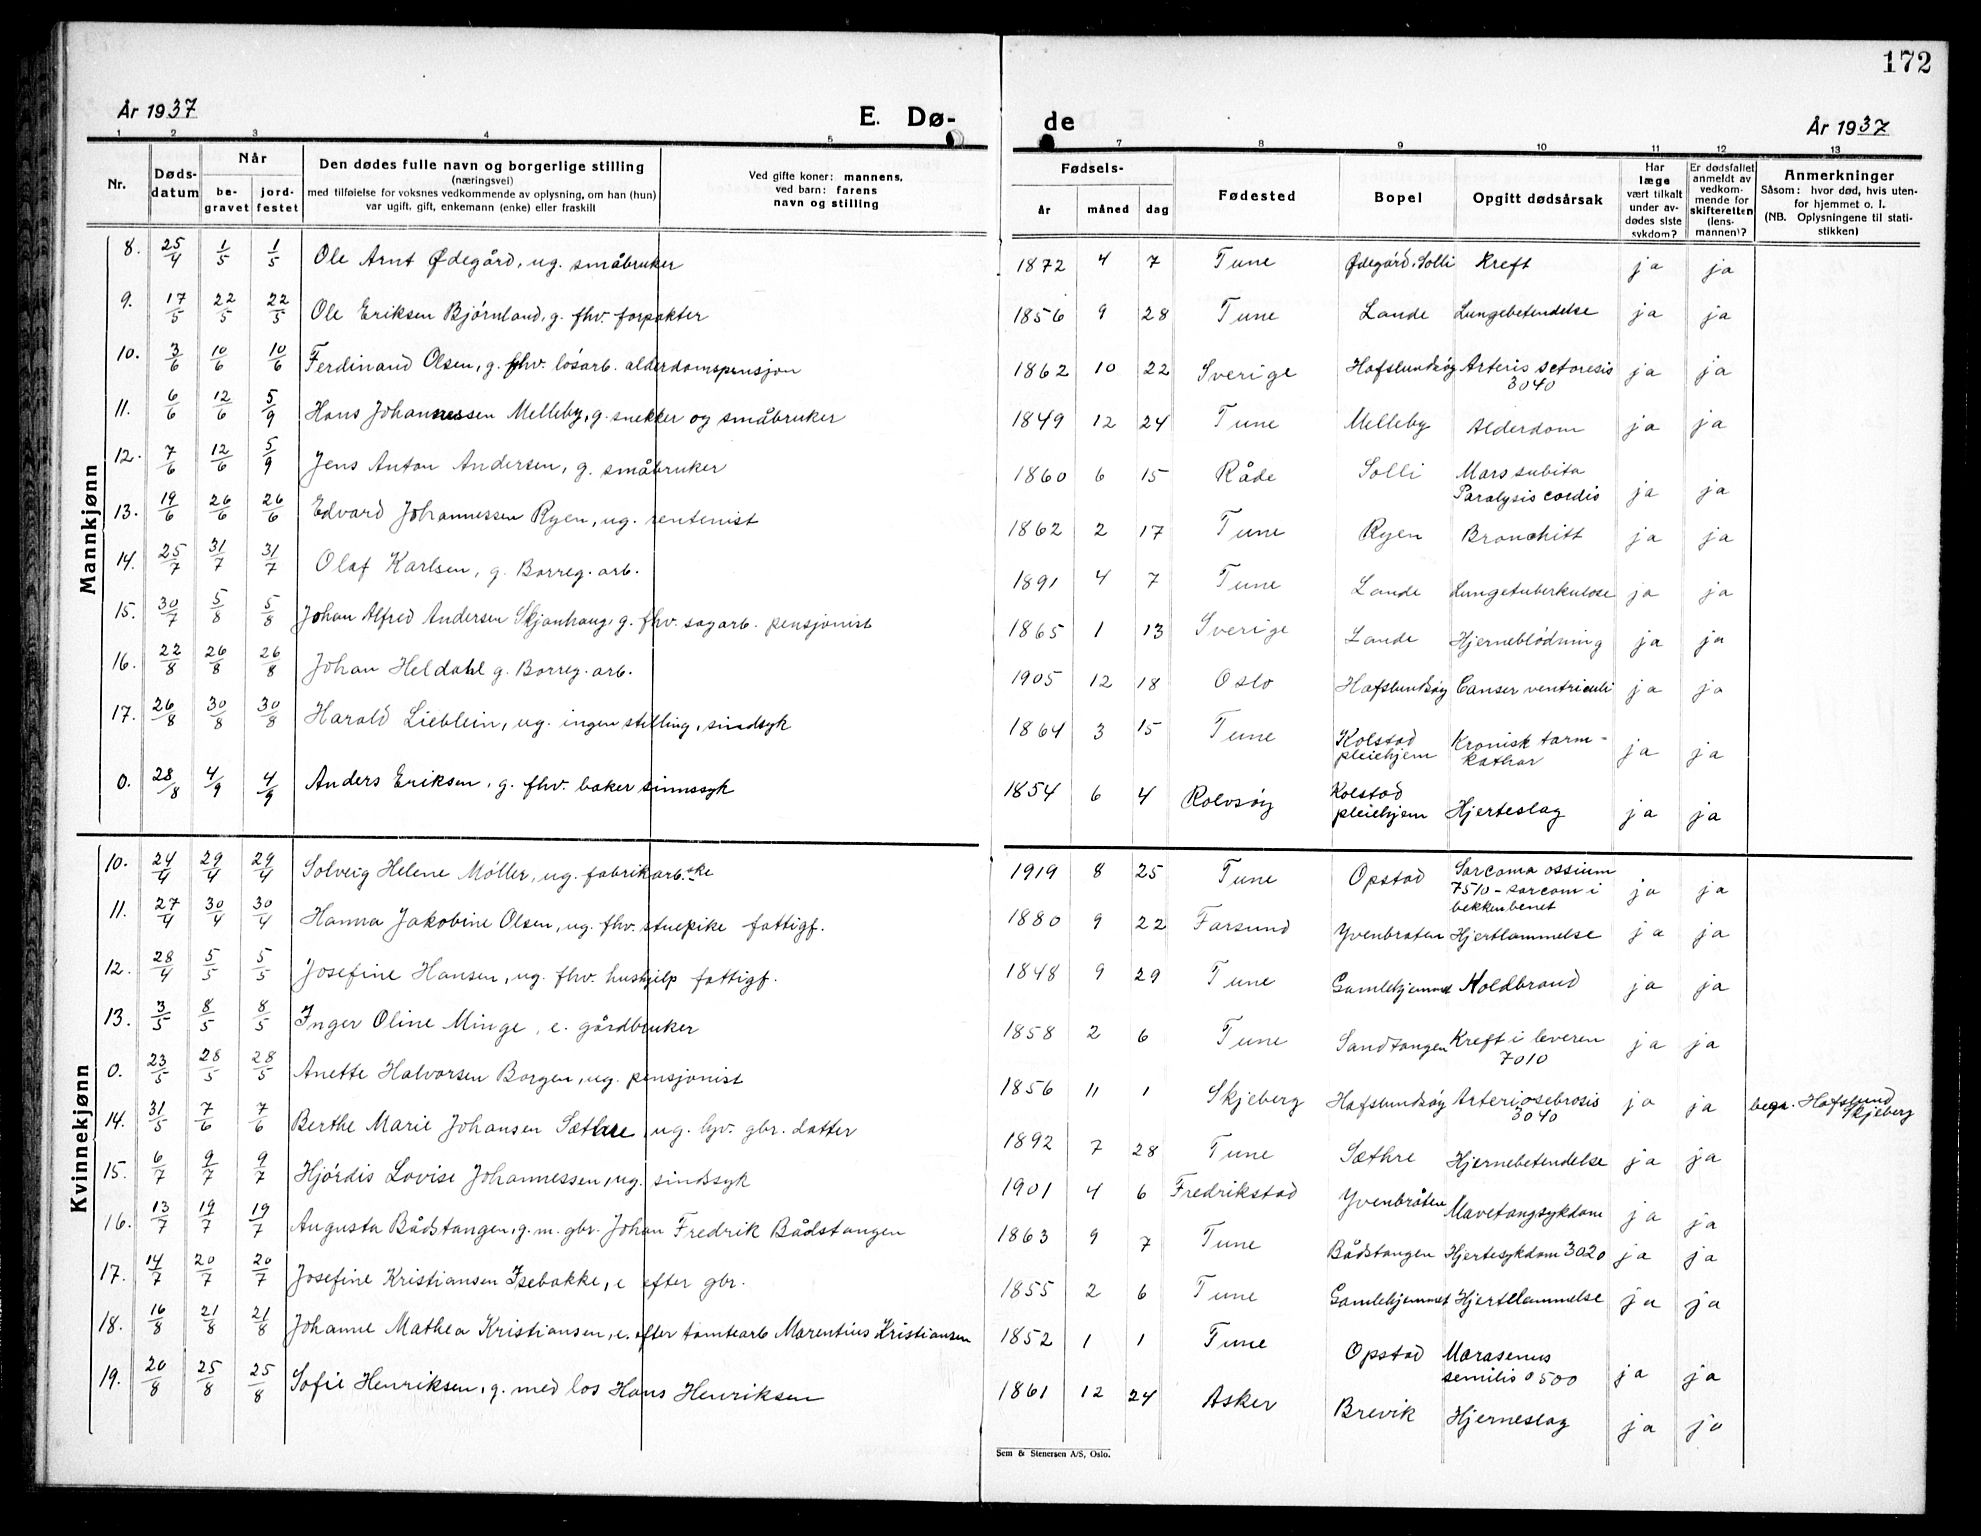 172
År 1937 E. Dø- de År 1937
1 2 3 4 5 7 8 9 10 11 12 13
Nr. | Dødsdatum | Når begravet | jordfestet | Den dødes fulle navn og borgerlige stilling (næringsvei) med tilføielse for voksnes vedkommende av oplysning, om han (hun) var ugift, gift, enkemann (enke) eller fraskilt | Ved gifte koner: mannens, ved barn: farens navn og stilling | Fødsels- år | måned | dag | Fødested | Bopel | Opgitt dødsårsak | Har læge vært tilkalt under avdødes siste sykdom? | Er dødsfallet anmeldt av vedkommende for skifteretten (lensmannen)? | Anmerkninger Såsom: hvor død, hvis utenfor hjemmet o. l. (NB. Oplysningene til statistikken)
Mannkjønn
8. 25/4 1/5 1/5 Ole Arnt Ødegård, ug. småbruker 1872 4 7 Tune Ødegård, Solli Kreft ja ja
9. 17/5 22/5 22/5 Ole Eriksen Bjørnland, g. fhv. forpakter 1856 9 28 Tune Lande Lungebetendelse ja ja
10. 3/6 10/6 10/6 Ferdinand Olsen, g. fhv. løsarb. alderdomspensjon 1862 10 22 Sverige Hafslundsøy Arteris sctoresis 3040 ja ja
11. 6/6 12/6 5/9 Hans Johannessen Melleby, g. snekker og småbruker 1849 12 24 Tune Melleby Alderdom ja ja
12. 7/6 12/6 5/9 Jens Anton Andersen, g. småbruker 1860 6 15 Råde Solli Mars subita Paralysis cordis ja ja
13. 19/6 26/6 26/6 Edvard Johannessen Ryen, ug. rentenist 1862 2 17 Tune Ryen Bronchitt ja ja
14. 25/7 31/7 31/7 Olaf Karlsen, g. Borreg. arb. 1891 4 7 Tune Lande Lungetuberkulose ja ja
15. 30/7 5/8 5/8 Johan Alfred Andersen Skjanhaug, g. fhv. sagarb. pensjonist 1865 1 13 Sverige Lande Hjerneblødning ja ja
16. 22/8 26/8 26/8 Johan Heldahl g. Borreg. arb. 1905 12 18 Oslo Hafslundsøy Canser ventriculi ja ja
17. 26/8 30/8 30/8 Harald Lieblein, ug. ingen stilling, sindsyk 1864 3 15 Tune Kolstad pleiehjem Kronisk tarmkathar ja ja
0. 28/8 4/9 4/9 Anders Eriksen, g. fhv. baker sinnssyk 1854 6 4 Rolvsøy Kolstad pleiehjem Hjerteslag ja ja
Kvinnekjønn
10. 24/4 29/4 29/4 Solveig Helene Møller, ug. fabrikarb.ske 1919 8 25 Tune Opstad Sarcoma ossium 7510 - sarcom i bekkenbenet ja ja
11. 27/4 30/4 30/4 Hanna Jakobine Olsen, ug. fhv. stuepike fattigf. 1880 9 22 Farsund Yvenbråten Hjertlammelse ja ja
12. 28/4 5/5 5/5 Josefine Hansen, ug. fhv. hushjelp fattigf. 1848 9 29 Tune Gamlehjemmet Koldbrand ja ja
13. 3/5 8/5 8/5 Inger Oline Minge, e. gårdbruker 1858 2 6 Tune Sandtangen Kreft i leveren 7010 ja ja
0. 23/5 28/5 28/5 Anette Halvorsen Borgen, ug. pensjonist 1856 11 1 Skjeberg Hafslundsøy Arteriosebrosis 3040 ja ja begr. Hafslund Skjeberg
14. 31/5 7/6 7/6 Berthe Marie Johansen Sæthre, ug. hjv. gbr. datter 1892 7 28 Tune Sæthre Hjernebetendelse ja ja
15. 6/7 9/7 9/7 Hjørdis Lovise Johannessen, ug. sindssyk 1901 4 6 Fredrikstad Yvenbråten Mavetangsykdom ja ja
16. 13/7 19/7 19/7 Augusta Bådstangen, g. m. gbr. Johan Fredrik Bådstangen 1863 9 7 Tune Bådstangen Hjertesykdom 3020 ja ja
17. 14/7 20/7 20/7 Josefine Kristiansen Isebakke, e. efter gbr. 1855 2 6 Tune Gamlehjemmet Hjertlammelse ja ja
18. 16/8 21/8 21/8 Johanne Mathea Kristiansen, e. efter tomtearb Marentius Kristiansen 1852 1 1 Tune Opstad Marasenus semilis 0500 ja ja
19. 20/8 25/8 25/8 Sofie Henriksen, g. med los Hans Henriksen 1861 12 24 Asker Brevik Hjerneslag ja ja
Sem & Stenersen A/S, Oslo.